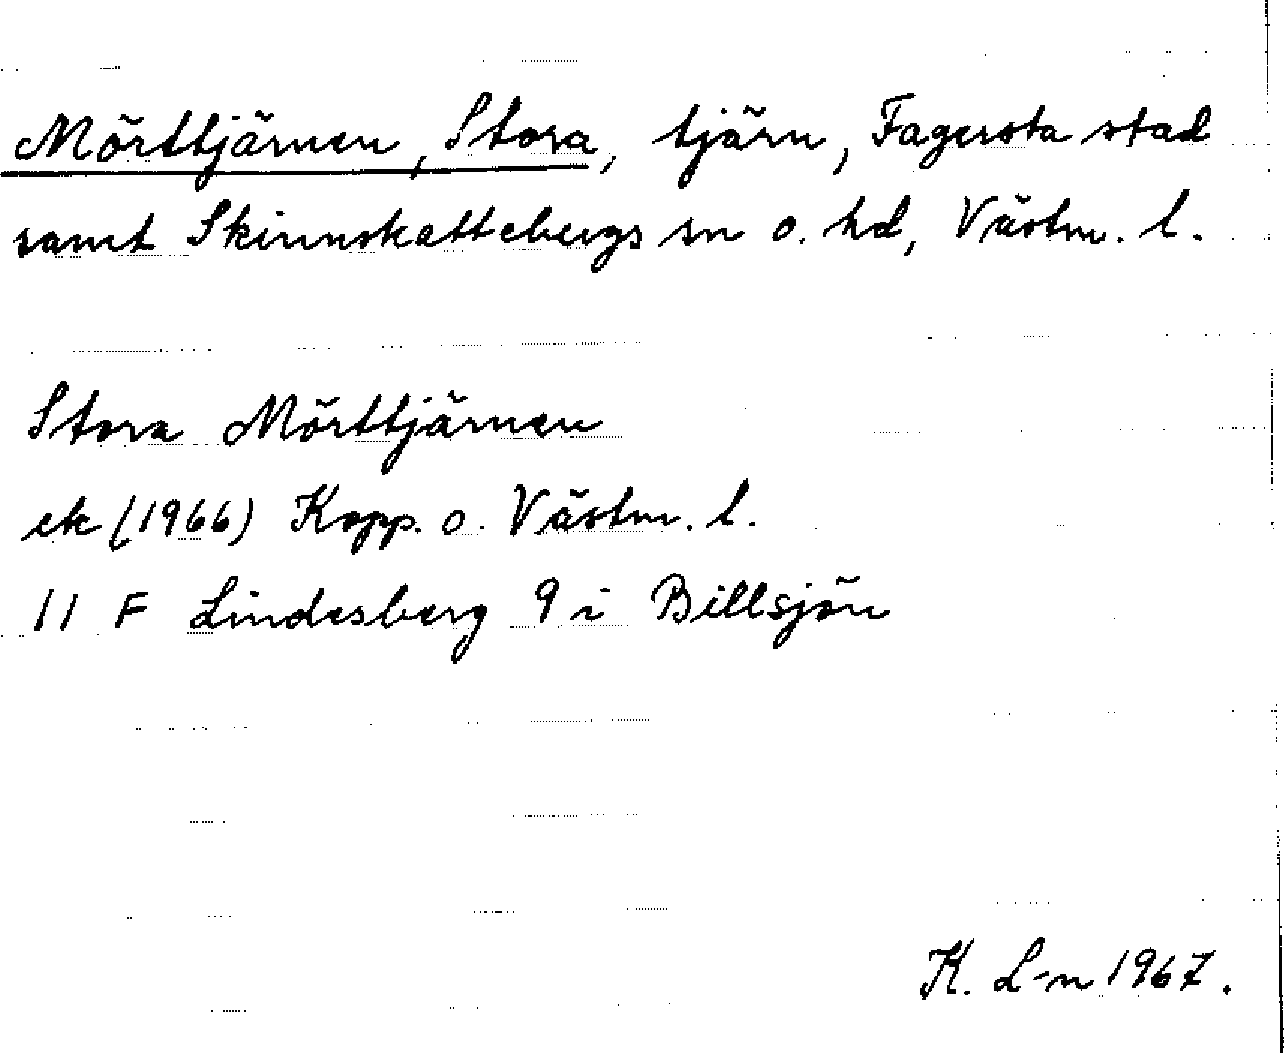 Mörttjärnen, Stora, tjärn, Fagersta stad
samt Skinnskattebergs sn o. hd, Västm. l.
Stora Mörttjärnen
ek (1966) Kopp. o. Västm. l.
11 F Lindesberg 9 i Billsjön
K. L-n 1967.